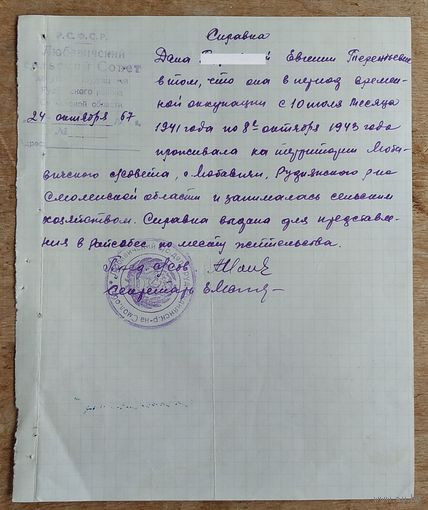 Справка
Р.С.Ф.С.Р.
Любавичский
сельский Совет
24 октября 67
№
Дана Евгении Терентьевне
в том, что она в период времен-
ной оккупации с 10 июля месяца
1941 года по 8е октября 1943 года
проживала на территории Люба-
вичского с/совета, д. Любавичи, Руднянского р-на
Смоленской области и занималась сельским
хозяйством. Справка выдана для представле-
ния в Райсобес по месту жительства.
Пред. с/сов.
Секретарь